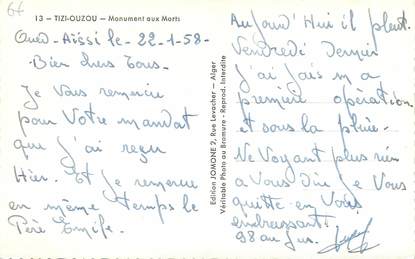 64
13 – TIZI-OUZOU – Monument aux Morts
Oued-Aïssi le - 22-1-58-
Bien chers Tous-
Je Vous remercie
pour Votre mandat
que j'ai reçu
Hier. Et je remercie
en même temps le
Père Emile.
Edition JOMONE 2, Rue Levacher – Alger
Véritable Photo au Bromure - Reprod. Interdite
Aujourd'Hui il pleut.
Vendredi Dernier
j'ai fais ma
première opération
et sous la pluie-
Ne Voyant plus rien
a Vous Dire je Vous
quitte en Vous
embrassant.
98 au jus.